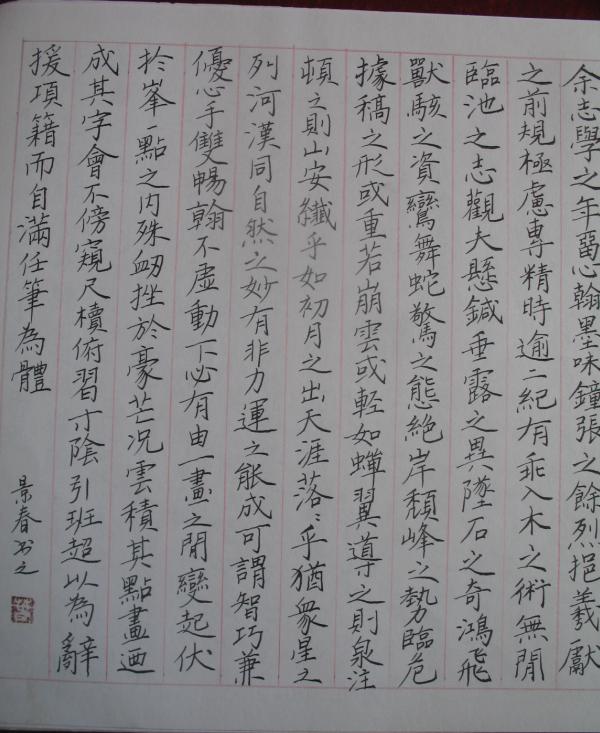 余志學之年畱心翰墨味鐘張之餘烈挹羲獻
之前規極慮專精時逾二紀有乖入木之術無閒
臨池之志觀夫懸鍼垂露之異墜石之奇鴻飛
獸駭之資鸞舞蛇驚之態絕岸頹峰之勢臨危
據稿之形或重若崩雲或輕如蟬翼導之則泉注
頓之則山安纖乎如初月之出天涯落々乎猶衆星之
列河漢同自然之妙有非力運之能成可謂智巧兼
優心手雙暢翰不虛動下必有由一畫之閒變起伏
於峯一點之内殊衄挫於豪芒况雲積其點畫迺
成其字會不傍窺尺櫝俯習寸陰引班超以為辭
援項籍而自滿任筆為體
景春书之